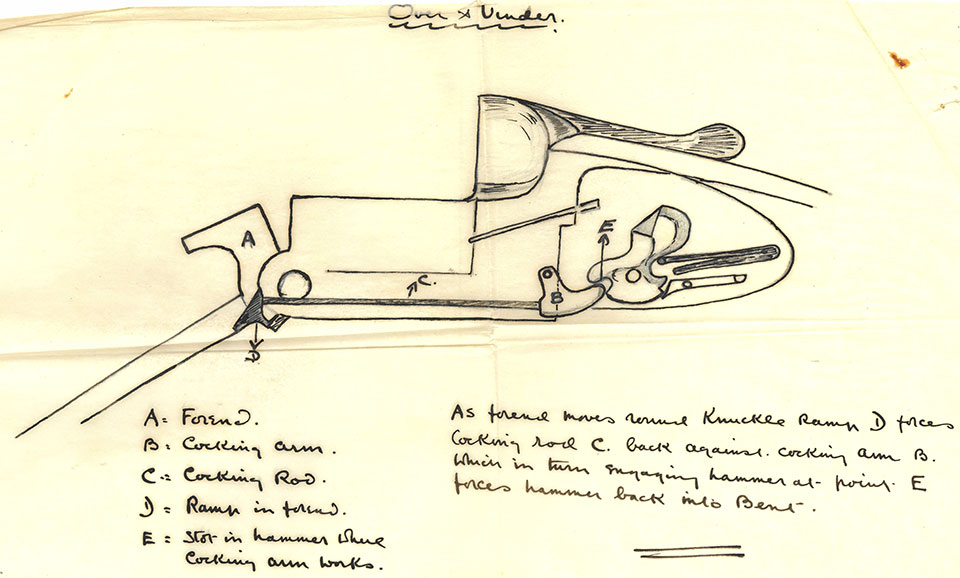 Over & Under.
A
E
C.
B
D
A = Forend.
B = Cocking arm.
C = Cocking Rod.
D = Ramp in forend.
E = Slot in hammer where
Cocking arm works.
As forend moves round Knuckle Ramp D forces
Cocking rod C. back against. cocking arm B.
Which in turn engaging hammer at point E
forces hammer back into Bent.